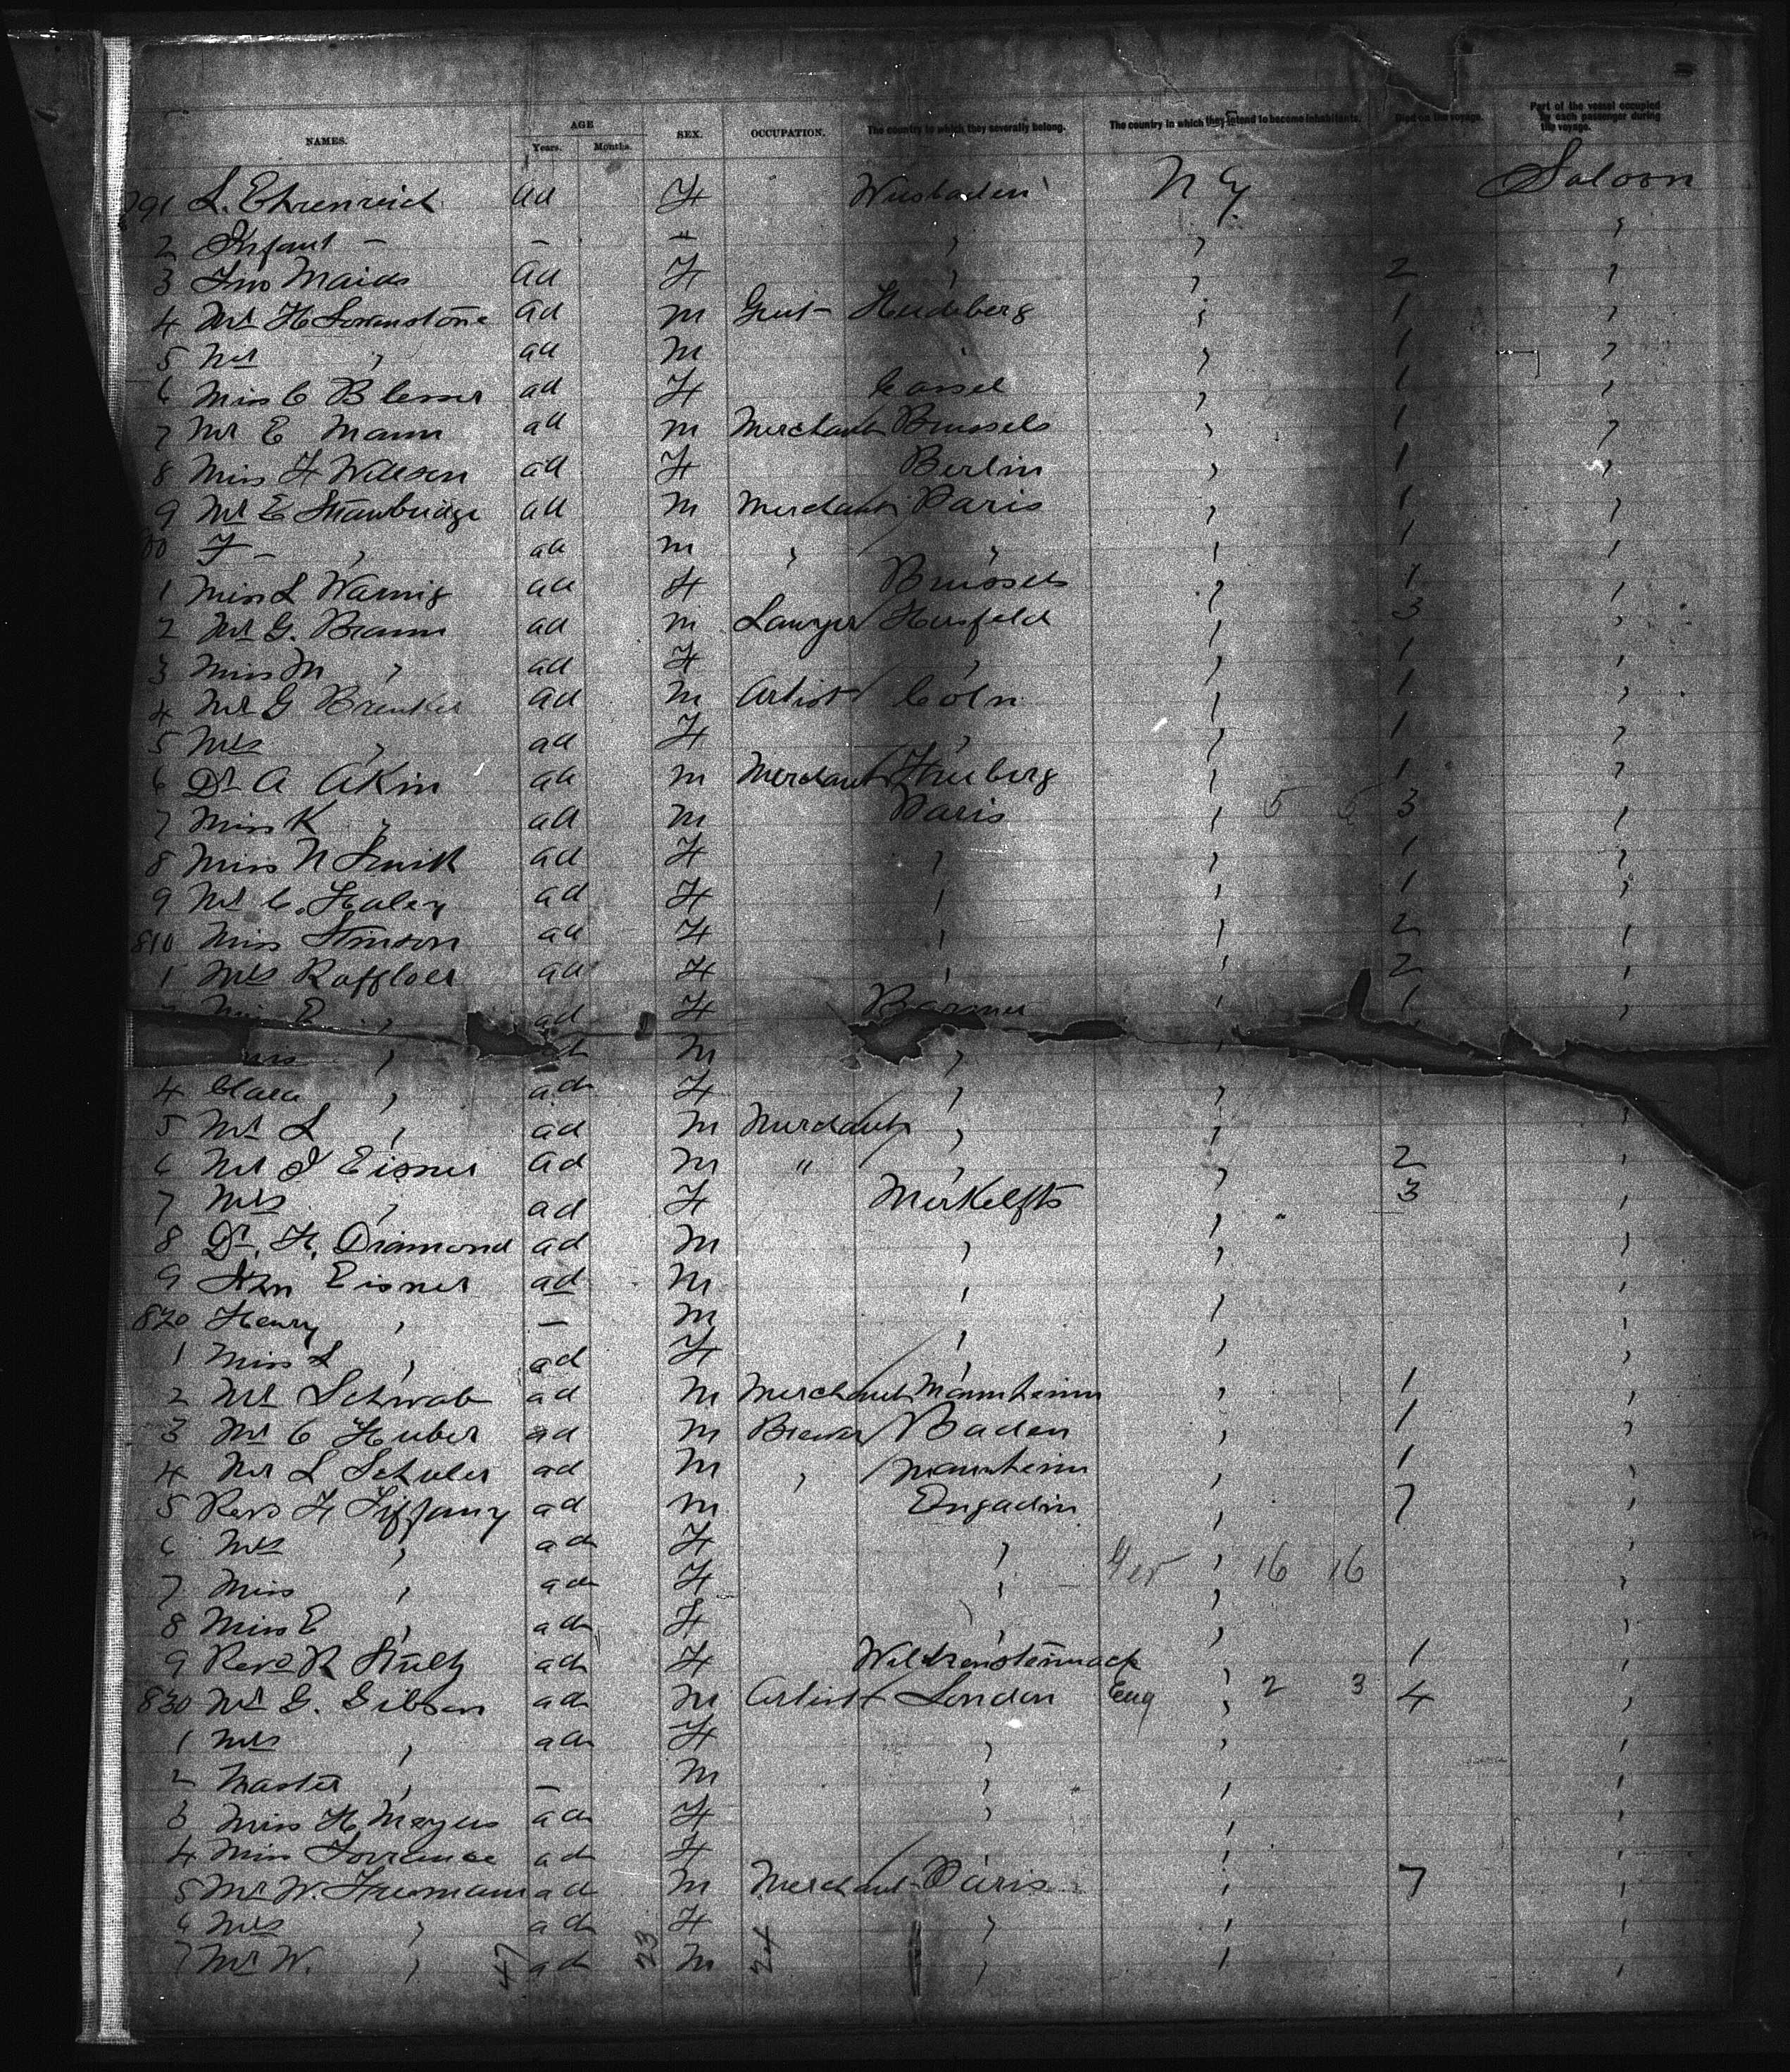 NAMES. AGE Years. Months. SEX. OCCUPATION. The country to which they severally belong. The country in which they intend to become inhabitants. Died on the voyage. Part of the vessel occupied by each passenger during the voyage.
791 L. Ehrenreich ad F Wiesbaden N Y. Saloon
2 Infant — — — " " "
3 Two Maids ad F " " 2 "
4 Mr H Lowenstone ad M Gent Heidelberg " 1 "
5 Mr " ad M " " 1 "
6 Miss C Blesser ad F Cassel " 1 "
7 Mr E Mann ad M Merchant Brussels " 1 "
8 Miss F Willson ad F Berlin " 1 "
9 Mr E Strawbridge ad M Merchant Paris " 1 "
00 F — " ad M " " " 1 "
1 Miss L Warnig ad F Brussels " 1 "
2 Mr G. Braun ad M Lawyer Hersfeld " 3 "
3 Miss M " ad F " " 1 "
4 Mr G Brenker ad M Artist Coln " 1 "
5 Mrs " ad F " " 1 "
6 Dr A Akin ad M Merchant Freiberg " 1 "
7 Miss K " ad M Paris " 5 5 3 "
8 Miss N Smith ad F " " 1 "
9 Mr C. Haley ad F " " 1 "
810 Miss Stinson ad F " " 2 "
1 Mrs Raffloer ad F " " 2 "
Miss E " ad F Barmen " 1 "
" ad M " "
4 Clara " ad F " "
5 Mr L " ad M Merchant " " "
6 Mr I Eisner ad M " " " 2 "
7 Mrs " ad F " 3 "
8 Dr. H. Diamond ad M " " "
9 Eisner ad M " "
820 Henry " — M " "
1 Miss L " ad F " " "
2 Mr Schwab ad M Merchant Mannheim " 1 "
3 Mr C Huber ad M Brewer Baden " 1 "
4 Mr L Schuler ad M " Mannheim " 1 "
5 Revd F Tiffany ad M Engadin " 7 "
6 Mrs " ad F " " "
7 Miss " ad F " Ger " 16 16 "
8 Miss E " ad F " " "
9 Revd R ad F " 1
830 Mr G. Gibson ad M Artist London Eng " 2 3 4 "
1 Mrs " ad F " " "
2 Master " — M " " "
3 Miss H Meyers ad F " " "
4 Miss Torrence ad F " "
5 Mr W. Freeman ad M Merchant Paris " 7 "
6 Mrs " ad F " " "
7 Mr W. " ad M " " "
47 23 24